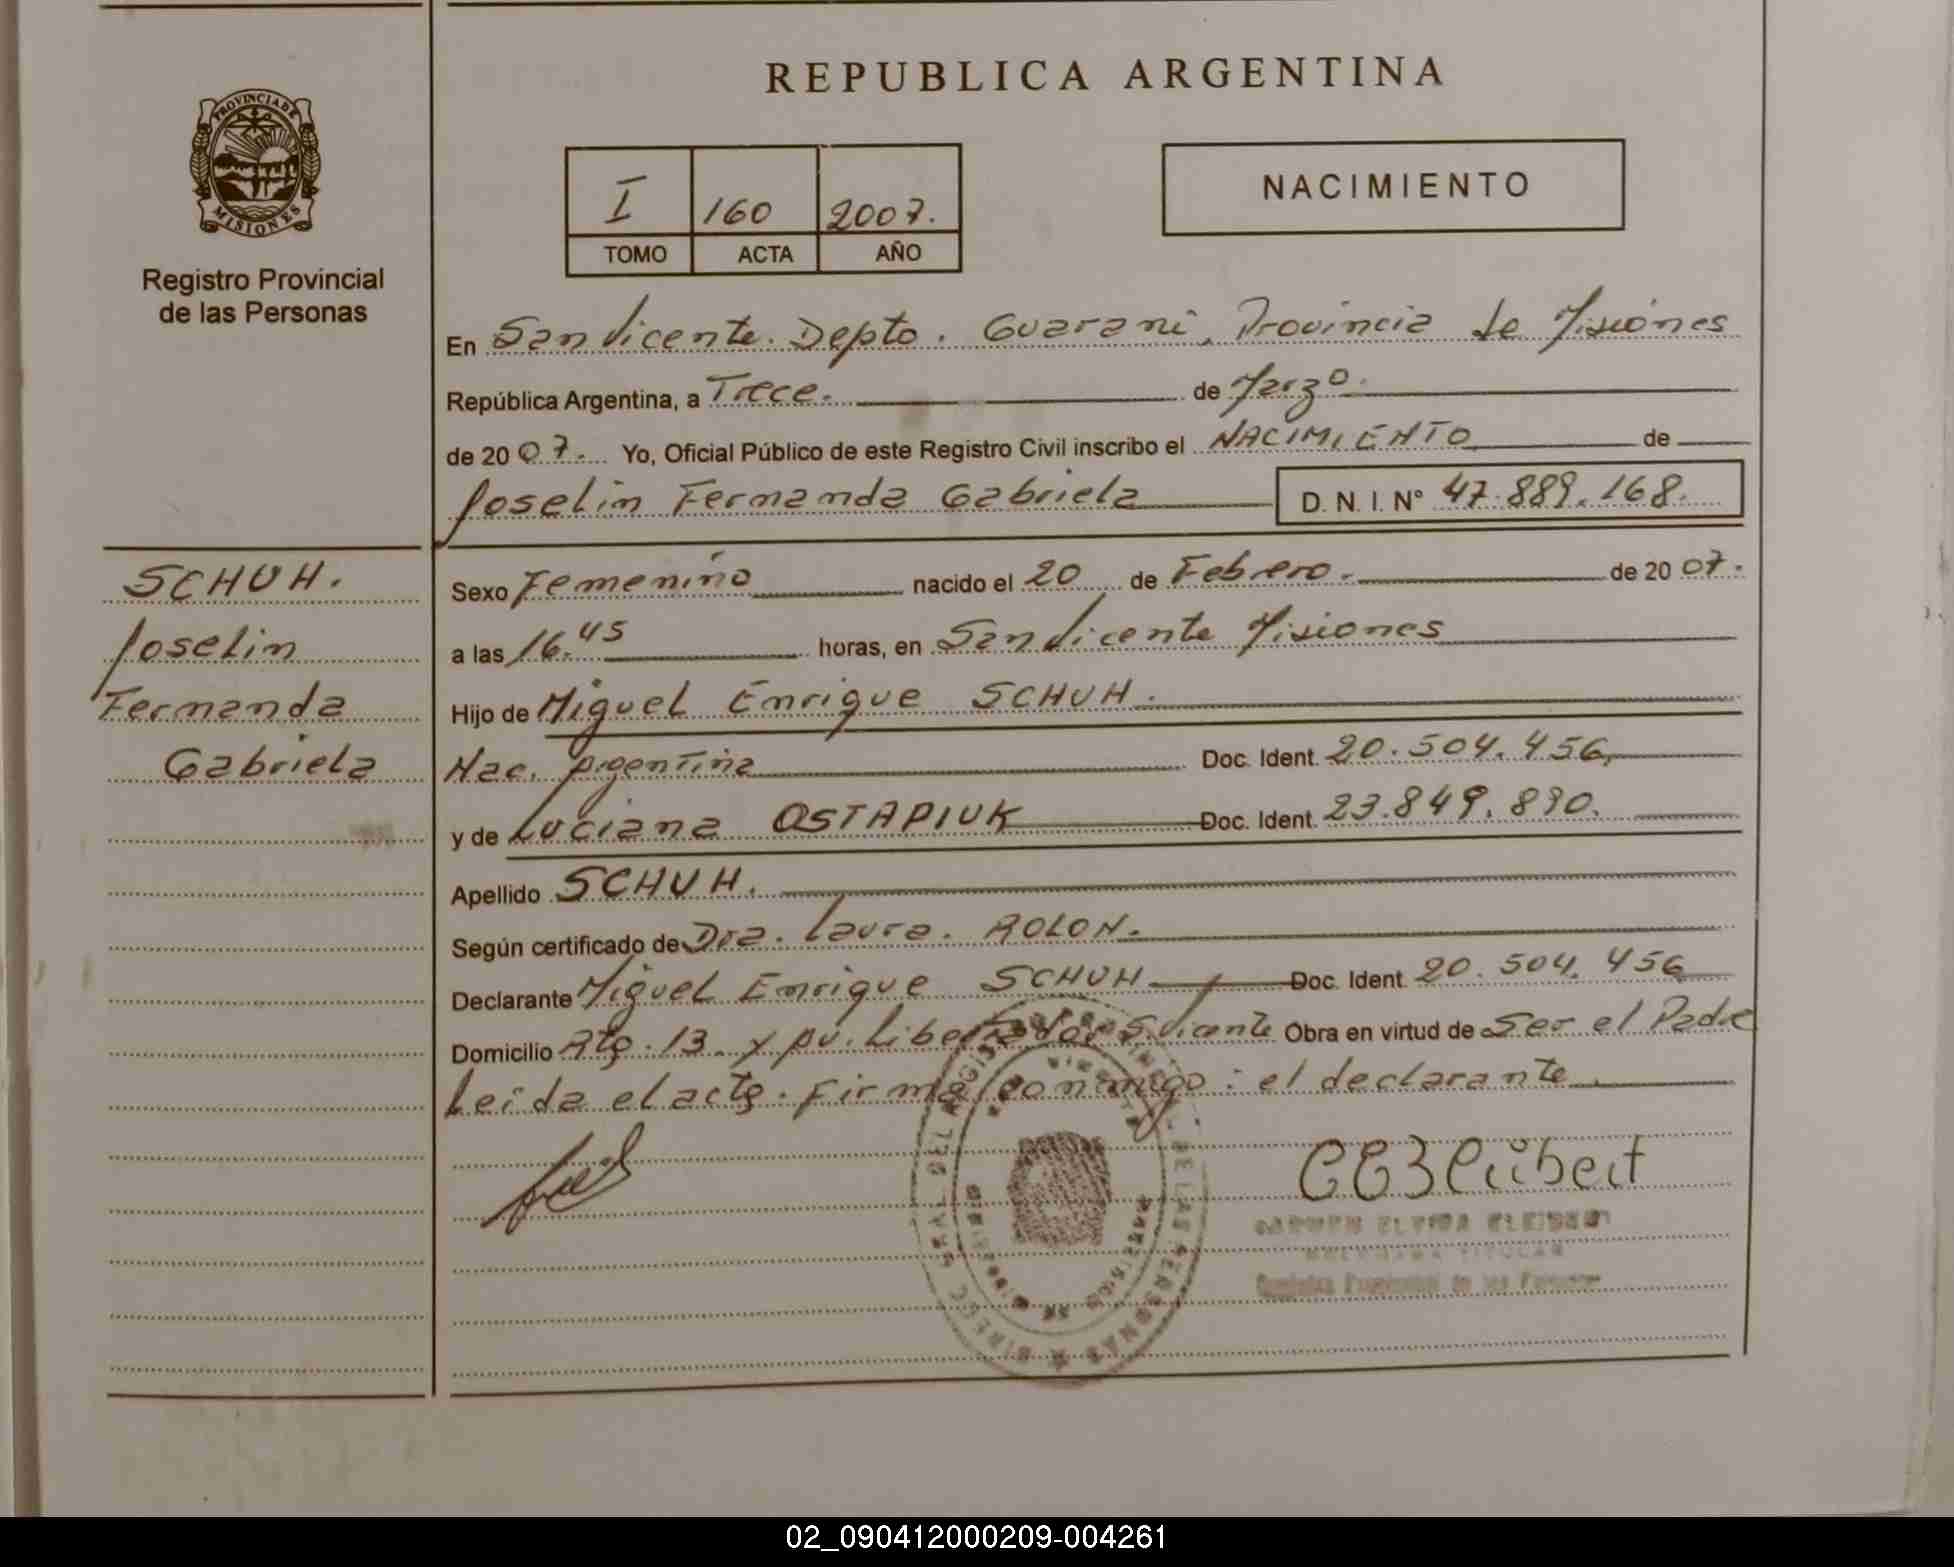 REPUBLICA ARGENTINA
PROVINCIA DE
MISIONES
Registro Provincial
de las Personas
I 160 2007.
TOMO ACTA AÑO
NACIMIENTO
En San Vicente. Depto. Guarani, Provincia de Misiones
República Argentina, a Trece. de Marzo.
de 2007. Yo, Oficial Público de este Registro Civil inscribo el NACIMIENTO de
Joselin Fernanda Gabriela D. N. I. N° 47.889.168.
SCHUH.
Joselin
Fernanda
Gabriela
Sexo Femenino nacido el 20 de Febrero. de 2007.
a las 16.45 horas, en San Vicente Misiones
Hijo de Miguel Enrique SCHUH.
Nac. Argentina Doc. Ident. 20.504.456,
y de Luciana OSTAPIUK Doc. Ident. 23.849.890.
Apellido SCHUH.
Según certificado de Dra. Laura. ROLON.
Declarante Miguel Enrique SCHUH Doc. Ident. 20.504.456
Domicilio Rta. 13. y Av. Libertador S. Vicente Obra en virtud de Ser el Padre
Leida el acta. Firma conmigo: el declarante.
DEL REGISTRO
DE LAS PERSONAS
TITULAR
02_090412000209-004261